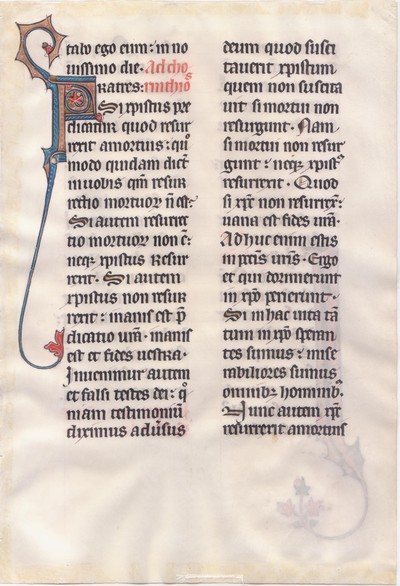 tabo ego eum: in no
uissimo die. Ad cho
Fratres: rinthios
Si xpistus pre
dicatur quod resur
rexit amortuis: quo
modo quidam dict̄
in uobis qm̄ resur
rectio mortuoꝝ n̄ est:
Si autem resurrec
tio mortuoꝝ non ē:
neqꝫ xpistus resur
rexit. Si autem
xpistus non resur
rexit: inanis est p̄
dicatio ur̄a. inanis
est et fides uestra.
Inuenimur autem
et falsi testes dei: qͦ
niam testimoniū
diximus adu͛sus
deum quod susci
tauerit xpistum
quem non suscita
uit si mortui non
resurgunt. Nam
si mortui non resur
gunt: neqꝫ xpistꝰ
resurrexit. Quod
si xp̄c non resurrex̄:
uana est fides ur̄a.
Adhuc enim estis
in pc̄tis ur̄is. Ergo
et qui dormierunt
in xp̄o perierunt.
Si in hac uita tā
tum in xp̄o speran
tes sumus: mise
rabiliores sumus
omnibꝫ hominibꝫ.
Nunc autem xp̄c
resurrexit amortuis